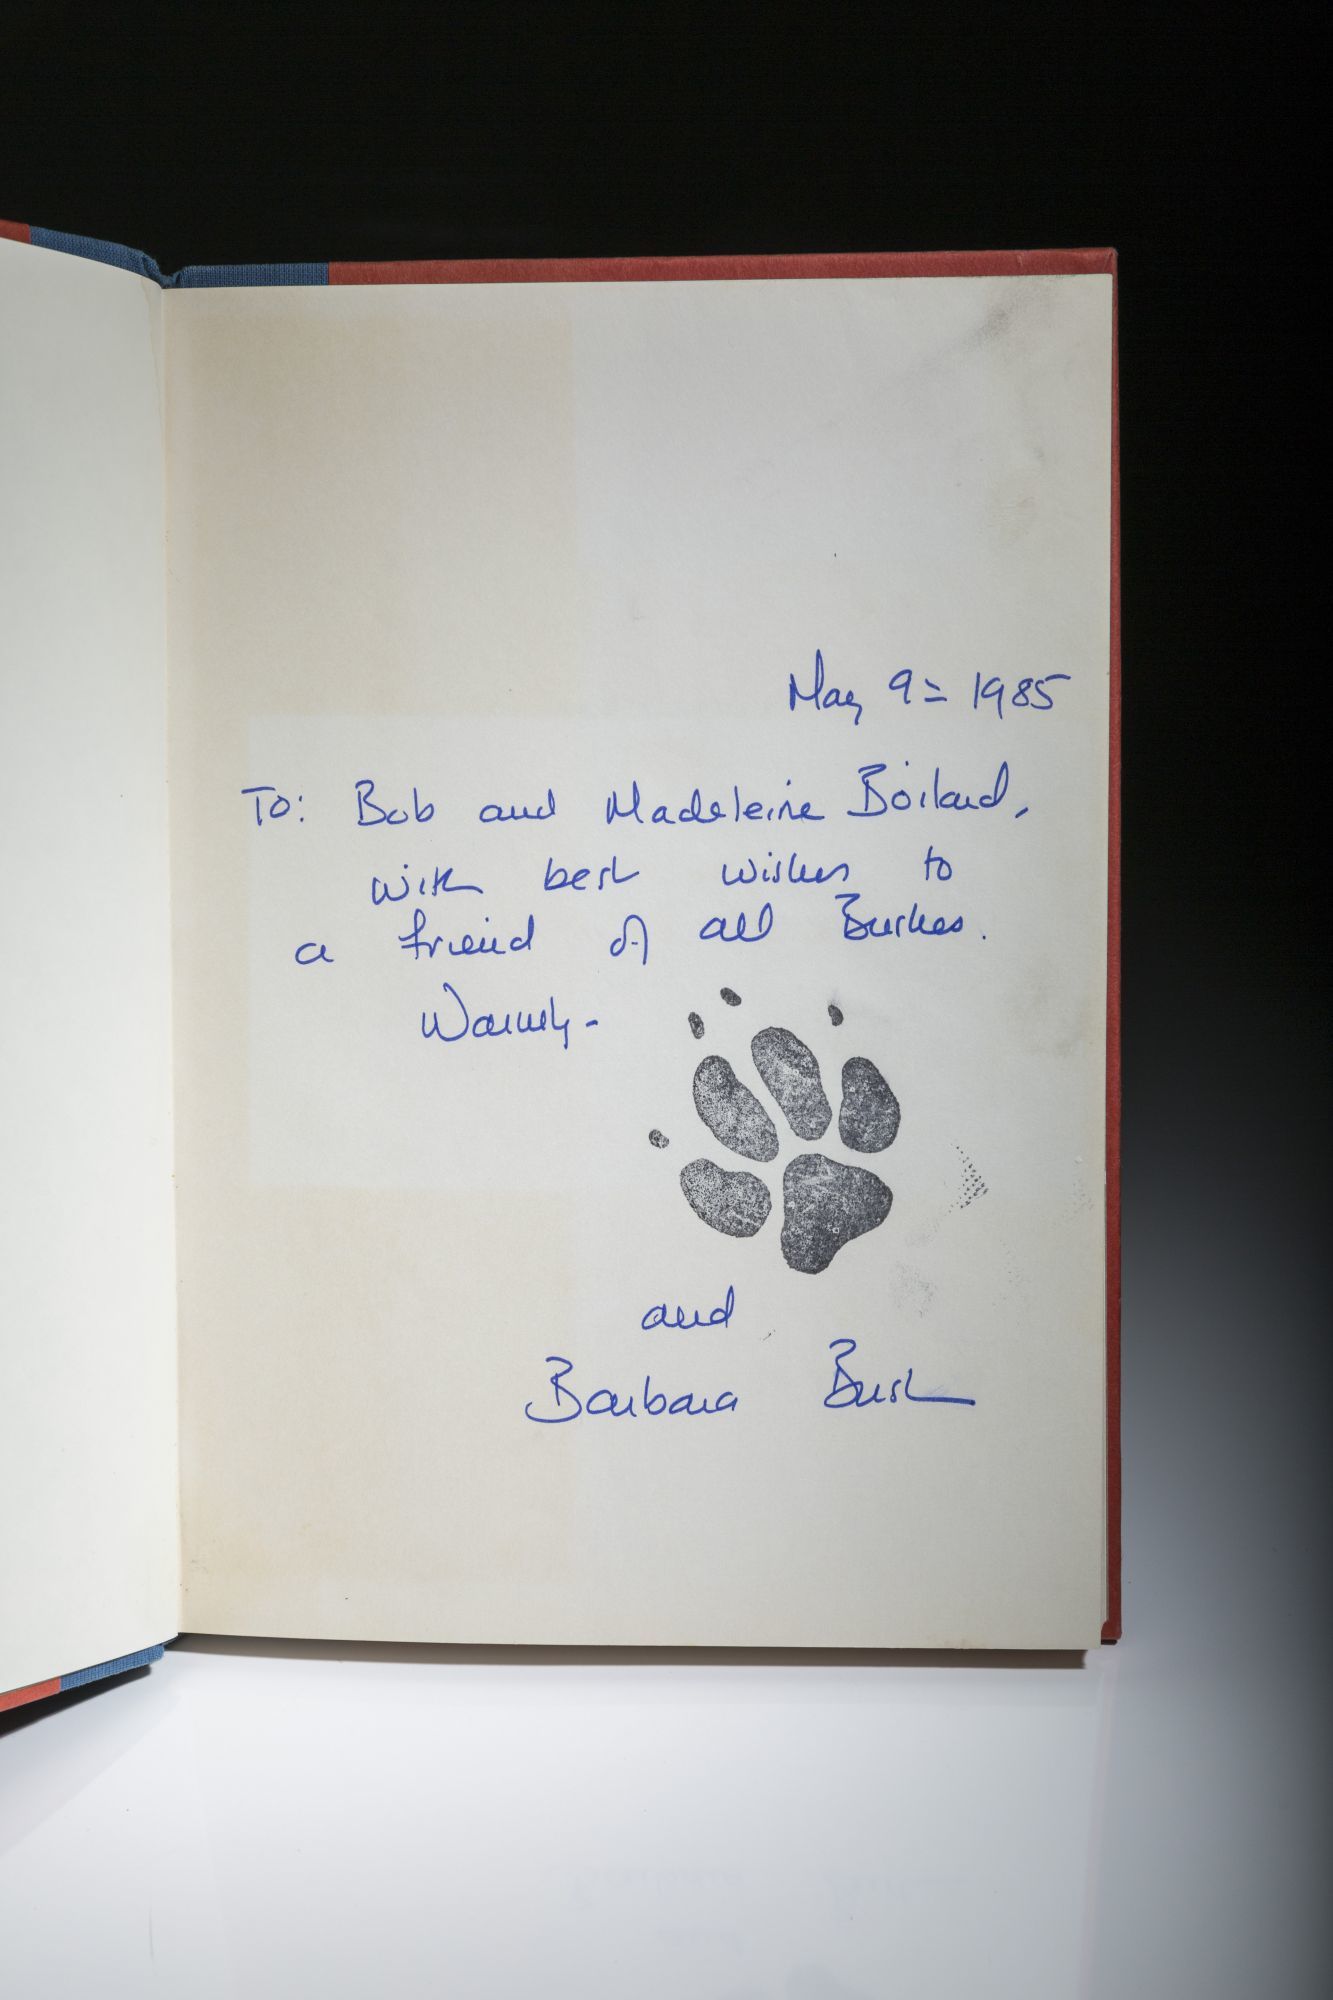 May 9= 1985
To: Bob and Madeleine Boiland,
with best wishes to
a friend of all Bushes.
Warmly-
and
Barbara Bush